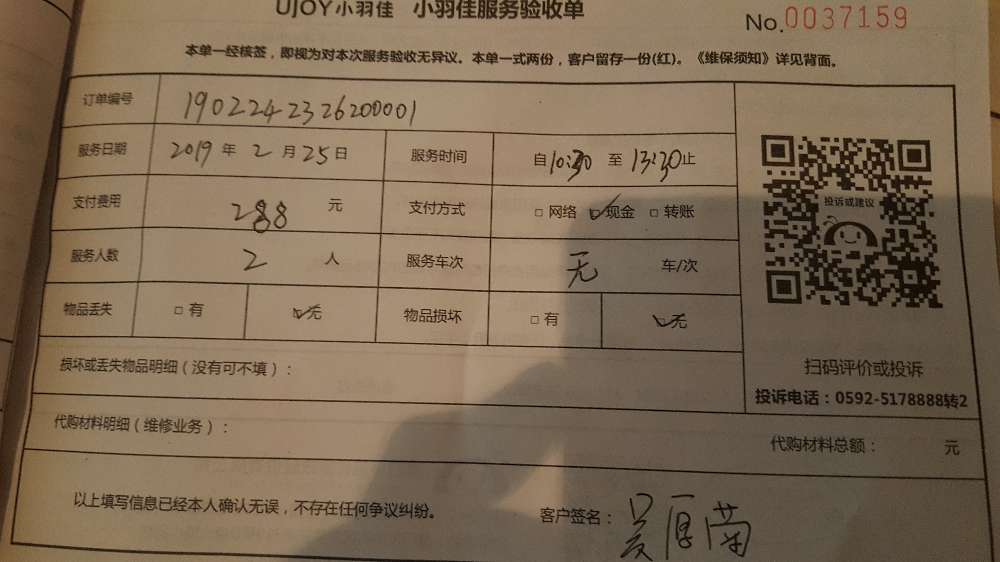 UJOY小羽佳 小羽佳服务验收单
No.0037159
本单一经核签，即视为对本次服务验收无异议。本单一式两份，客户留存一份(红)。《维保须知》详见背面。
订单编号 1902242326200001
服务日期 2019年2月25日 服务时间 自10:30至13:30止
支付费用 288元 支付方式 □网络 ☑现金 □转账
投诉或建议
服务人数 2人 服务车次 无 车/次
物品丢失 □有 ☑无 物品损坏 □有 ☑无
损坏或丢失物品明细（没有可不填）：
扫码评价或投诉
投诉电话：0592-5178888转2
代购材料明细（维修业务）： 代购材料总额： 元
以上填写信息已经本人确认无误，不存在任何争议纠纷。 客户签名：吴厚南